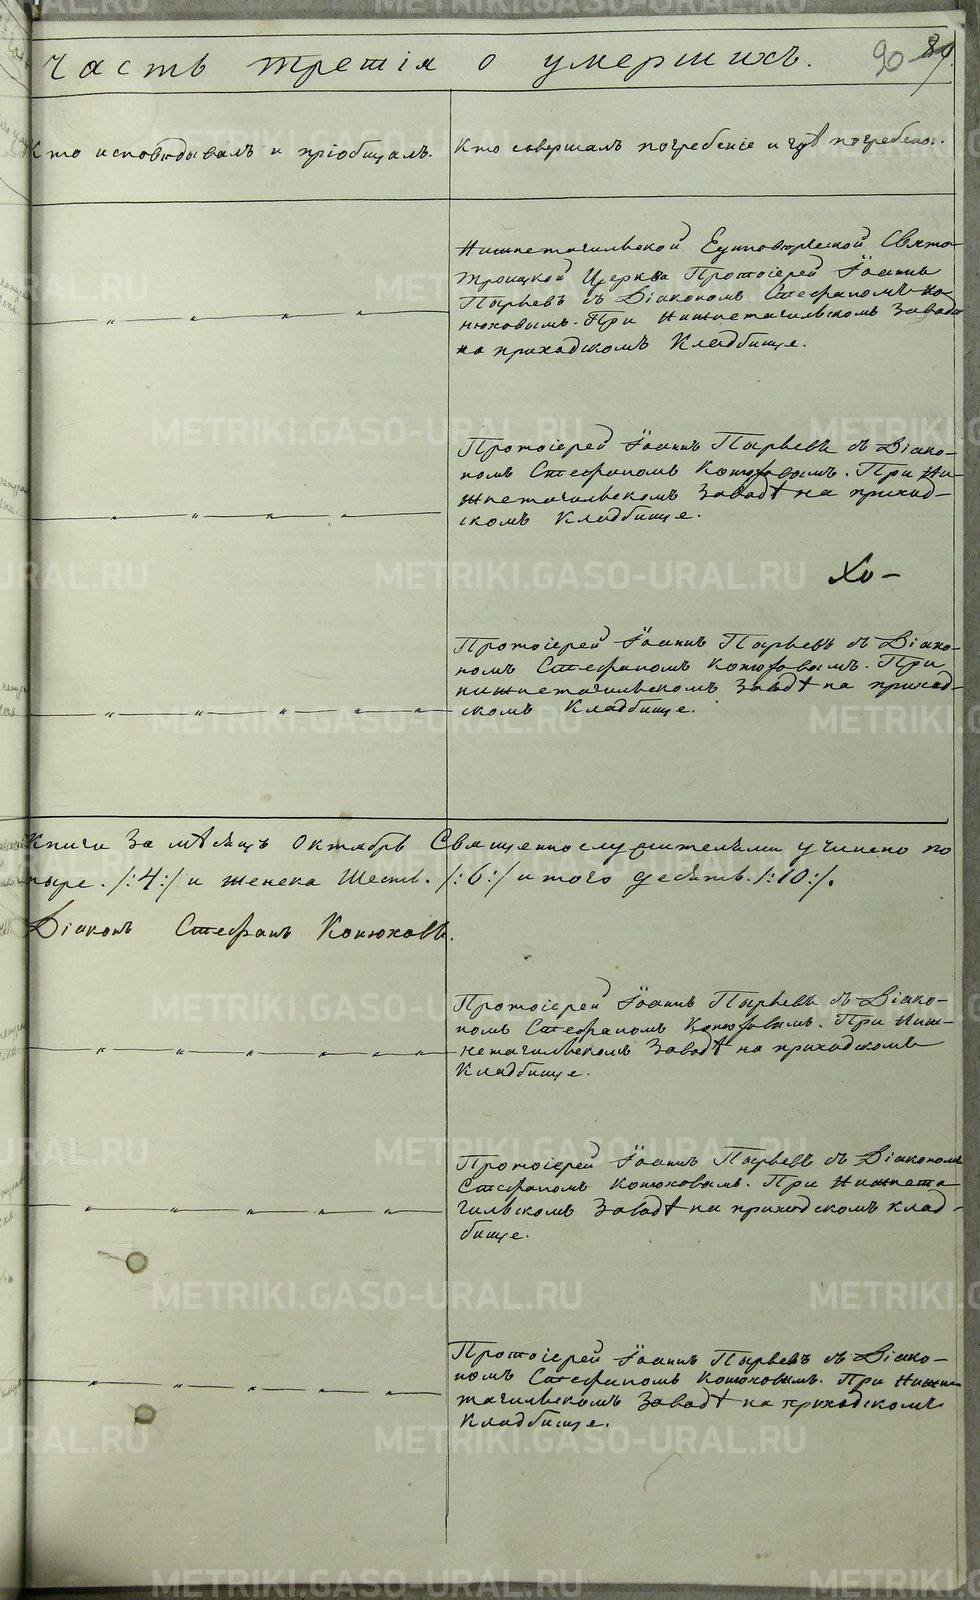 Часть третія о умершихъ.
90 89.
Кто исповѣдывалъ и пріобщалъ.
Кто совершалъ погребеніе и гдѣ погребены.
Нижнетагильской Единовѣрческой Свято-
Троицкой Церкви Протоіерей Іоаннъ
Пырьевъ съ Діакономъ Стефаномъ Ко-
нюховымъ. При Нижнетагильскомъ Заводѣ
на приходскомъ Кладбище.
Протоіерей Іоаннъ Пырьевъ съ Діако-
номъ Стефаномъ Конюховымъ. При Ни-
жнетагильскомъ Заводѣ на приход-
скомъ Кладбище.
Хо-
Протоіерей Іоаннъ Пырьевъ съ Діако-
номъ Стефаномъ Конюховымъ. При
нижнетагильскомъ Заводѣ на приход-
скомъ Кладбище.
Книги За мѣсяцъ Октябрь Священнослужителями учинено по
тыре. /:4:/ и женска Шесть. /:6:/ итого десять. /:10:/.
Діаконъ Стефанъ Конюховъ.
Протоіерей Іоаннъ Пырьевъ съ Діако-
номъ Стефаномъ Конюховымъ. При Ниж-
нетагильскомъ Заводѣ на приходскомъ
Кладбище.
Протоіерей Іоаннъ Пырьевъ съ Діакономъ
Стефаномъ Конюховымъ. При Нижнета
гильскомъ Заводѣ на приходскомъ клад-
бище.
Протоіерей Іоаннъ Пырьевъ съ Діако-
номъ Стефаномъ Конюховымъ. При Нижне
тагильскомъ Заводѣ на приходскомъ
Кладбище.
METRIKI.GASO-URAL.RU